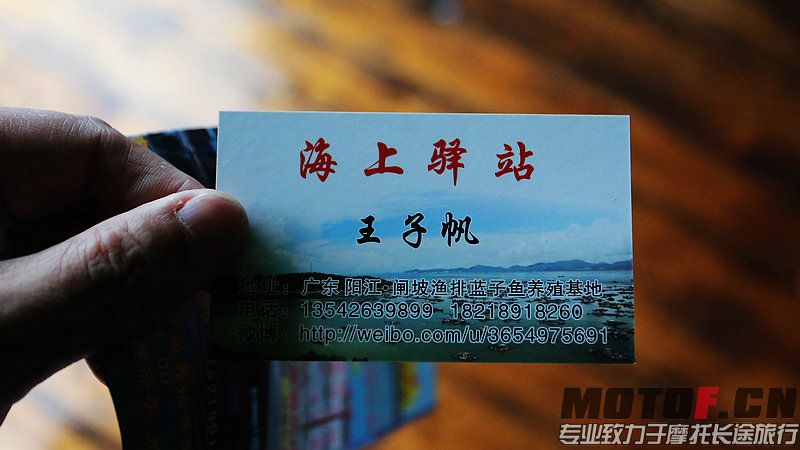 海上驿站
王子帆
地址：广东 阳江·闸坡渔排蓝子鱼养殖基地
电话：13542639899 18218918260
微博：http://weibo.com/u/3654975691
MOTOF.CN
专业致力于摩托长途旅行